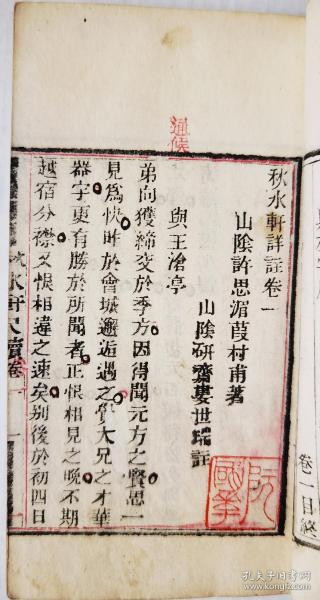 通候
秋水軒詳註卷一
山陰許思湄葭村甫著
山陰研齋婁世瑞註
與王滄亭
弟向獲締交於季方因得聞元方之賢思一
見為快昨於會城邂逅遇之覺大兄之才華
器宇更有勝於所聞者正恨相見之晚不期
越宿分襟又悵相違之速矣別後於初四日
秋水軒尺牘 卷一 一
卷一目終
孔夫子旧书网